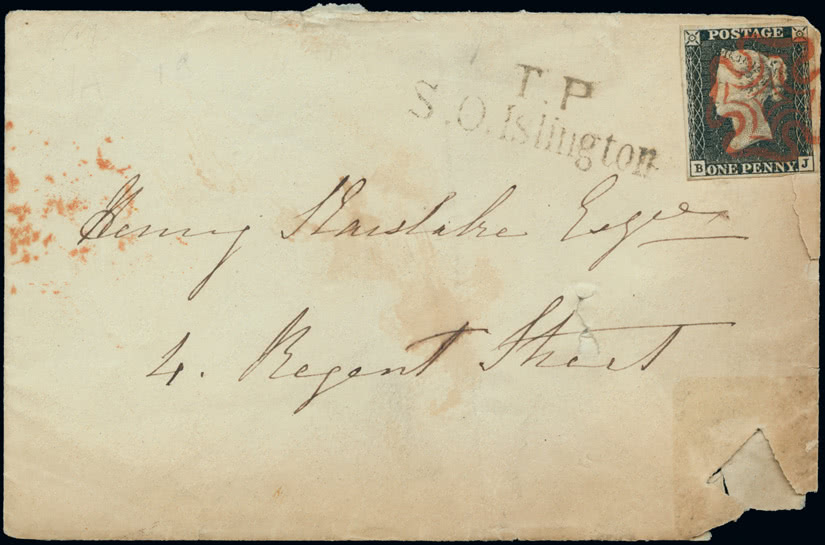 POSTAGE
B ONE PENNY J
T.P
S.O.Islington
Henry Karslake Esqre
4. Regent Street